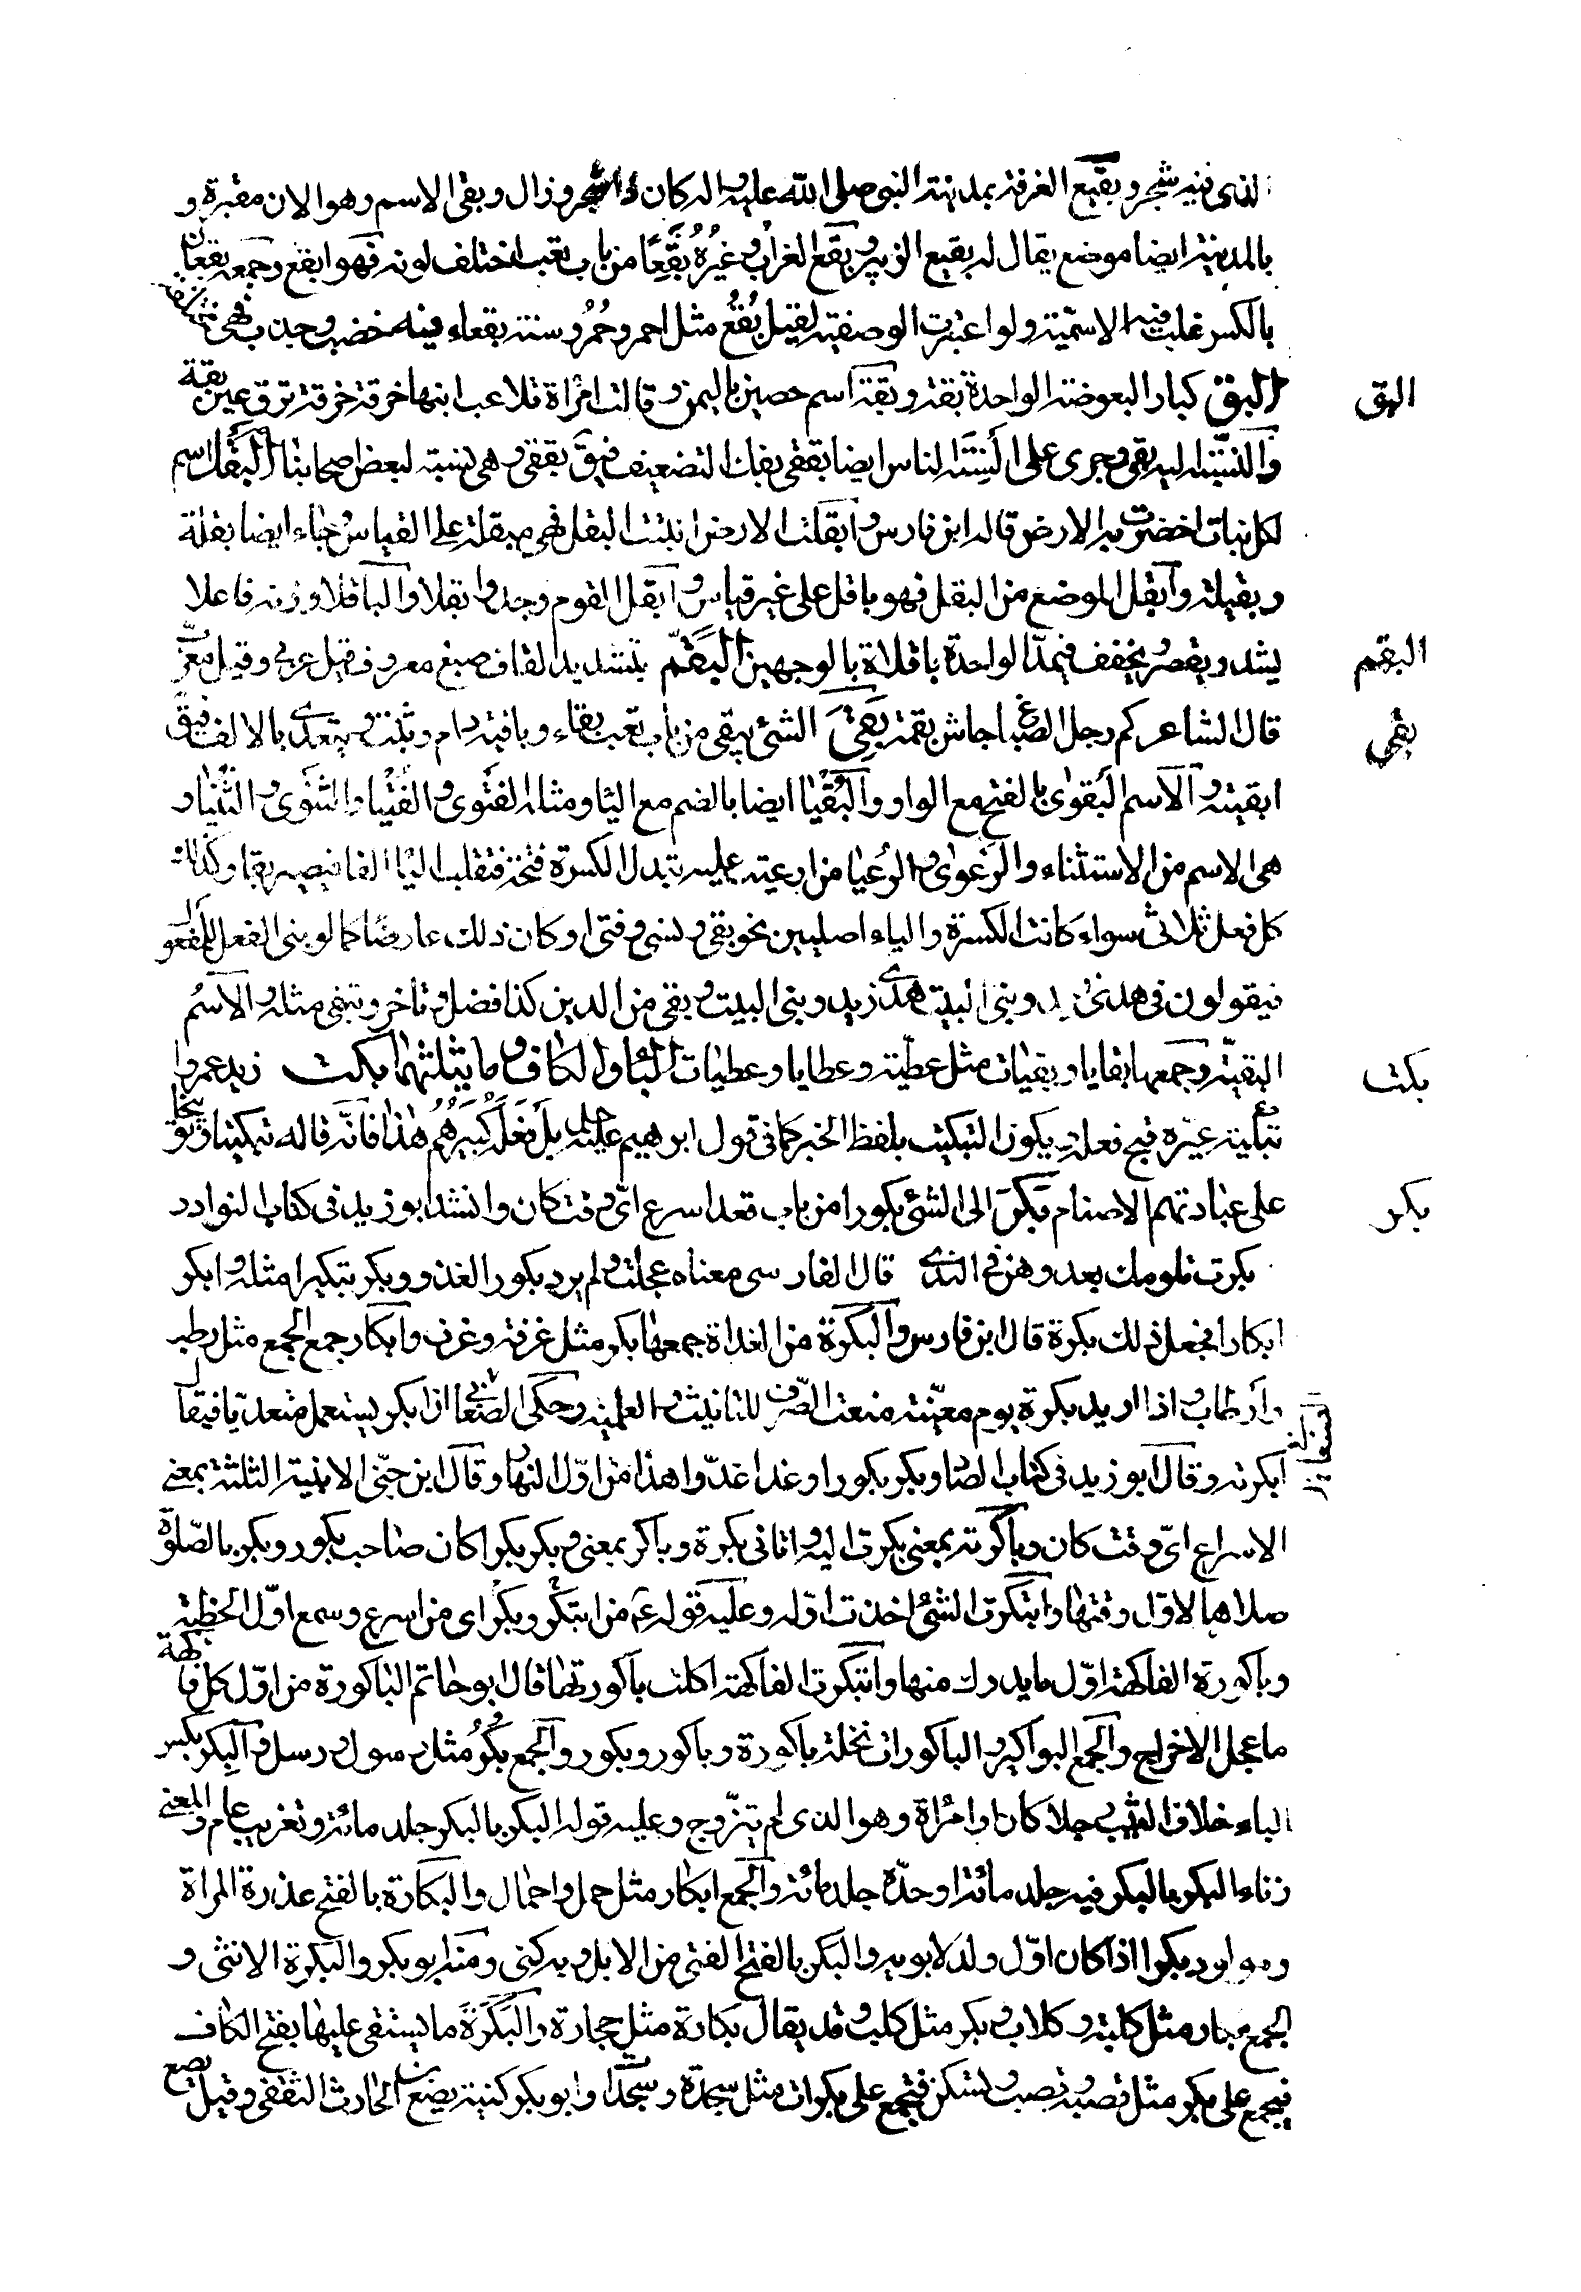 الذى فيه شجر وبقيع الغرقد بمدينة النبى صلى الله عليه واله كان ذا شجر وزال وبقى الاسم وهو الان مقبرة و
بالمدينة ايضا موضع يقال له بقيع الزبير وبقع الغراب وغيره بقعا من باب تعب اختلف لونه فهو ابقع وجمعه بقعان
بالكسر غلب فيه الاسمية ولو اعتبرت الوصفية لقيل بقع مثل احمر وحمر وسنة بقعاء فيه خصب وجدب فهى
البق
البق كبار البعوضة الواحدة بقة وبقة اسم حصن باليمن وقالت امرأة تلاعب ابنها خرقة خرقة ترق عين بقة
والنسبة اليه بقى وجرى على السنة الناس ايضا بققى بفك التضعيف فيق بققى وهى نسبة لبعض اصحابنا البقل اسم
لكل نبات اخضرت به الارض قاله ابن فارس وابقلت الارض انبتت البقل فهى مبقلة على القياس وجاء ايضا بقلة
وبقيلة وابقل الموضع من البقل فهو باقل على غير قياس وابقل القوم وجدوا بقلا والباقلا وزنه فاعلا
البقم
يشدد ويقصر ويخفف فيمد الواحدة باقلاة بالوجهين البقم بتشديد القاف صبغ معروف قيل عربى وقيل معرب
بقى
قال الشاعر كمرجل الصباغ جاش بقمه بقى الشئ يبقى من باب تعب بقاء وباقية دام وثبت ويتعدى بالالف فيق
ابقيته والاسم البقوى بالفتح مع الواو والبقيا ايضا بالضم مع اليا ومثله الفتوى والفتيا والثنوى والثنيا و
هى الاسم من الاستثناء والرعوى والرعيا من ارعيته عليه تبدل الكسرة فتحة فتقلب اليا الفا فيصير بقا وكذلك
كل فعل ثلاثى سواء كانت الكسرة والياء اصليين نحو بقى ونسى وفتى او كان ذلك عارضا كما لو بنى الفعل للمفعول
فيقولون فى هدى زيد وبنى البيت هدى زيد وبنى البيت وبقى من الدين كذا فضل وتاخر وتبقى مثله والاسم
بكت
البقية وجمعها بقايا وبقيات مثل عطية وعطايا وعطيات الباء والكاف وما يثلثهما بكت زيد عمروا
تبكيتا عيره وقبح فعله ويكون التبكيت بلفظ الخبر كما فى قول ابرهيم عليه بل فعله كبيرهم هذا فانه قاله تبكيتا وتوبيخا
بكر
على عبادتهم الاصنام بكر الى الشئ بكورا من باب قعد اسرع اى وقت كان وانشد ابو زيد فى كتاب النوادر
بكرت تلومك بعد وهن فى الندى قال الفارسى معناه عجلت ولم يرد بكور الغدو وبكر تبكيرا مثله وابكر
ابكارا فعل ذلك بكرة قال ابن فارس والبكرة من الغداة جمعها بكر مثل غرفة وغرف وابكار جمع الجمع مثل رطب
وارطاب واذا اريد بكرة يوم معينة منعت الصرف للتانيث والعلمية وحكى الصنعانى ان ابكر يستعمل متعديا فيقال
ابكرته وقال ابو زيد فى كتاب المصادر بكر بكورا وغدا غدوا هذا من اول النهار وقال ابن جنى الابنية الثلثة بمعنى
الاسراع اى وقت كان وباكرته بمعنى بكرت اليه واتانى بكرة وباكر بمعنى وبكر بكرا كان صاحب بكور وبكر بالصلوة
صلاها لاول وقتها وابتكرت الشئ اخذت اوله وعليه قوله عم من ابتكر وبكر اى من اسرع وسمع اول الخطبة
وباكورة الفاكهة اول ما يدرك منها وابتكرت الفاكهة اكلت باكورتها قال ابو حاتم الباكورة من اول كل فاكهة
ما عجل الاخراج والجمع البواكير والباكورات نخلة باكورة وباكور وبكور والجمع بكر مثل رسول ورسل والبكر بكسر
الباء خلاف الثيب رجلا كان او امرأة وهو الذى لم يتزوج وعليه قوله البكر بالبكر جلد مائة وتغريب عام والمعنى
زناء البكر بالبكر فيه جلد مائة او حده جلد مائة والجمع ابكار مثل حمل واحمال والبكارة بالفتح عذرة المراة
ومولود بكر اذا كان اول ولد لابويه والبكر بالفتح الفتى من الابل وبه كنى ومنه ابو بكر والبكرة الانثى و
الجمع بكار مثل كلبة وكلاب وبكر مثل كلب وقد يقال بكارة مثل حجارة والبكرة ما يستقى عليها بفتح الكاف
فيجمع على بكر مثل قصبة وقصب وتسكن فتجمع على بكرات مثل سجدة وسجدات وابو بكر كنية نفيع ابن الحارث الثقفى وقيل نفيع